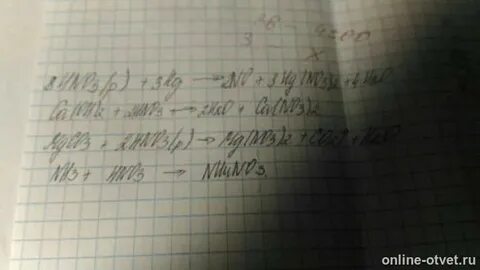 3 - x
8HNO3(p) + 3Hg → 2NO + 3Hg(NO3)2 + 4H2O
Ca(OH)2 + 2HNO3 → 2H2O + Ca(NO3)2
MgCO3 + 2HNO3(p) → Mg(NO3)2 + CO2↑ + H2O
NH3 + HNO3 → NH4NO3
online-otvet.ru